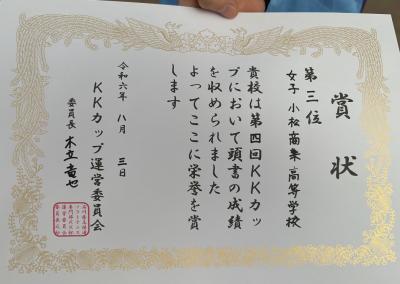 賞状
第三位
女子 小松商業高等学校
貴校は第四回KKカッ
プにおいて頭書の成績
を収められました
よってここに栄誉を賞
します
令和六年 八月 三日
KKカップ運営委員会
委員長 木立竜也